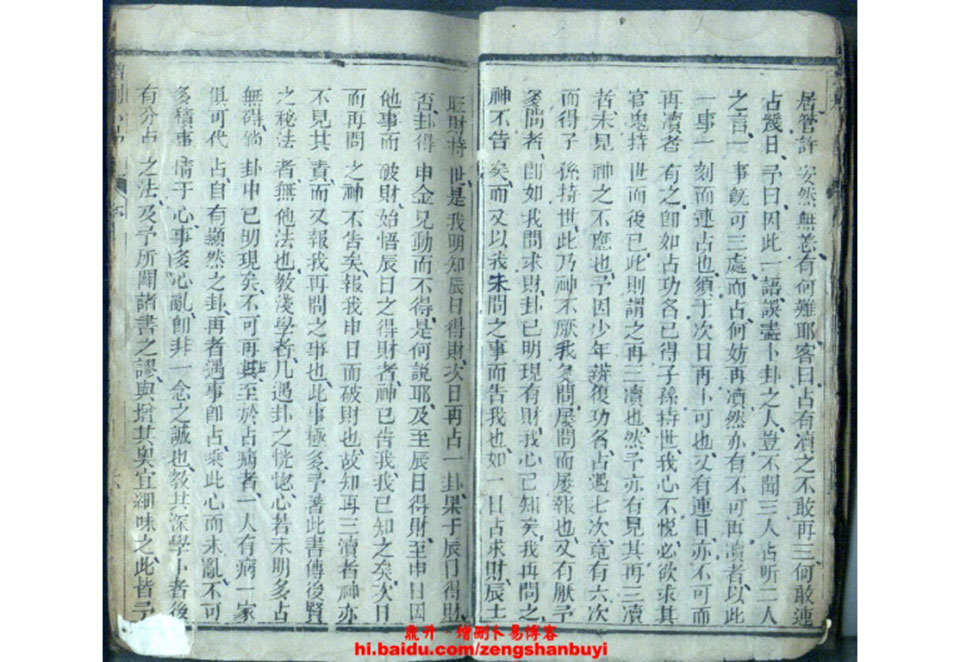 居管許安然無恙有何難耶客曰占有凟之不敢再三何敢連
占幾日予曰因此一語誤盡卜卦之人豈不聞三人占听二人
之言一事旣可三處而占何妨再凟然亦有不可再凟者以此
一事一刻而連占也須于次日再卜可也又有連日亦不可而
再凟者有之卽如占功名已得子孫持世我心不悅必欲求其
官鬼持世而後已此則謂之再三凟也然予亦有見其再三凟
者未見神之不應也予因少年辨復功名占過七次竟有六次
而得子孫持世此乃神不厭我多問屢問而屢報也又有厭予
多問者卽如我問求財卦已明現有財我心已知矣我再問之
神不告矣而又以我未問之事而告我也如一日占求財辰土
旺財持世是我明知辰日得財次日再占一卦果于辰日得財
否卦得申金兄動而不得是何説耶及至辰日得財至申日因
他事而破財始悟辰日之得財者神已告我我已知之矣次日
而再問之神不告矣報我申日而破財也故知再三凟者神亦
不見其責而又報我再問之事也此事極多予著此書傳後賢
之秘法者無他法也教淺學者凡遇卦之恍惚心若未明多占
無碍倘卦中已明現矣不可再凟至於占病者一人有病一家
俱可代占自有顯然之卦再者遇事卽占乘此心而未亂不可
多積事情于心事多心亂卽非一念之誠也教其深學卜者後
有分占之法及予所聞諸書之謬與增其奥宜細味之此皆予
鼎升·增刪卜易博客
hi.baidu.com/zengshanbuyi